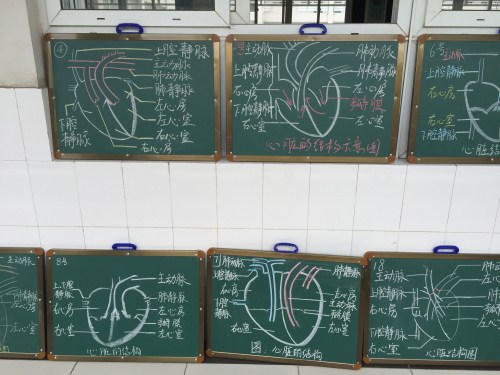 ④
上腔静脉
主动脉
肺动脉
肺静脉
左心房
左心室
右心室
右心房
下腔
静脉
主动脉
上腔静脉
右心房
下腔静脉
右心室
肺动脉
肺静脉
左心房
瓣膜
左心室
心脏的结构示意图
6号
主动脉
上腔静脉
右心房
右心室
下腔静脉
心脏结
主动脉
静脉
心房
心室
8号
上、下腔
静脉
右心房
右心室
主动脉
肺静脉
左心房
瓣膜
左心室
心脏的结构
肺动脉
上腔静脉
右心房
下腔
静脉
右心室
肺静脉
左心房
主动脉
瓣膜
左心室
图:心脏的结构
18
主动脉
上腔静脉
右心房
下腔静脉
右心室
肺动
肺静
左心
瓣
左心
心脏结构图